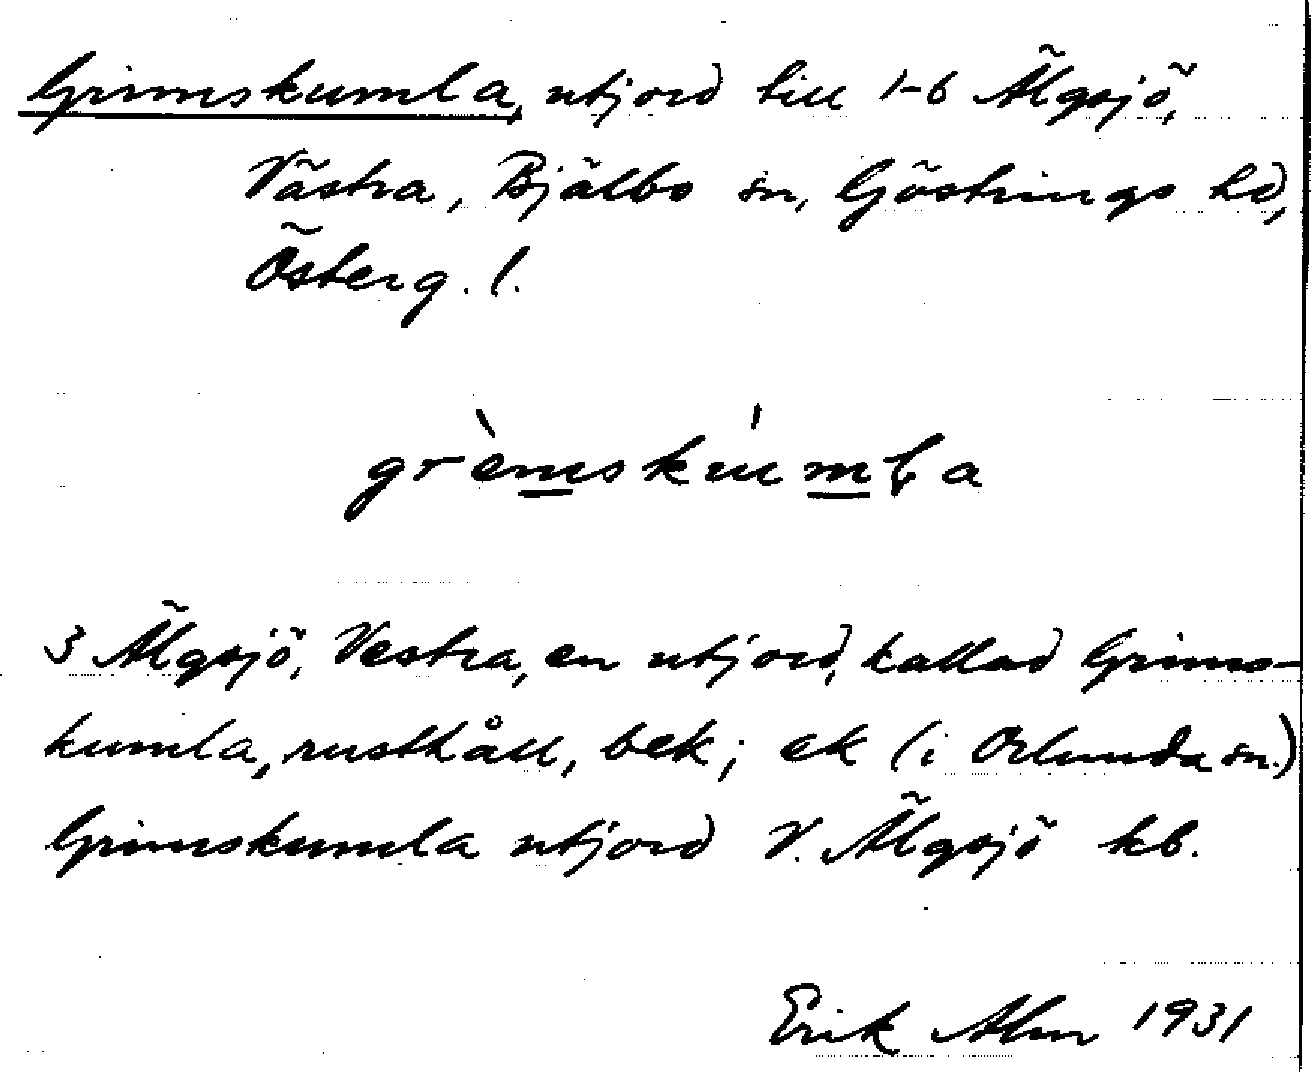 Grimskumla, utjord till 1-6 Älgsjö,
Västra, Bjälbo sn, Göstrings hd,
Österg. l.
grèmskúmla
3 Älgsjö, Vestra, en utjord, kallad Grims-
kumla, rusthåll, bek; ek (i Orlunda sn.)
Grimskumla utjord V. Älgsjö kb.
Erik Alm 1931